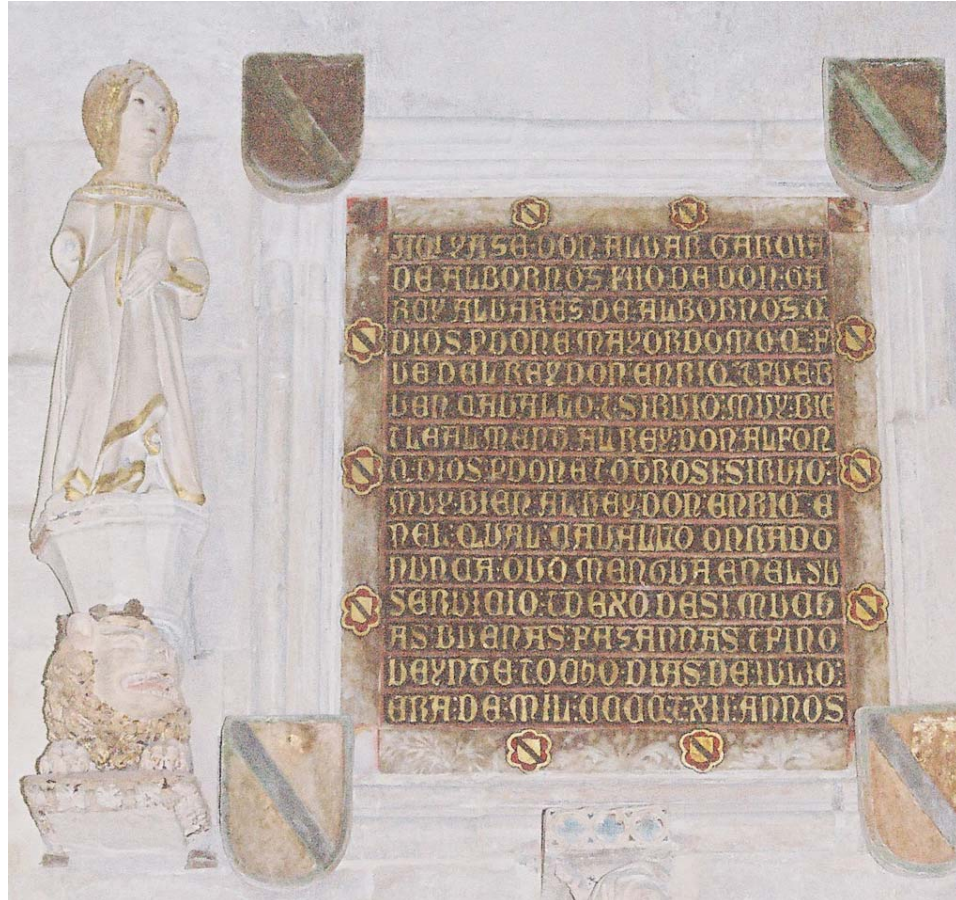 AQUI YASE: DON ALUAR GARCIA
DE ALBORNOS FIIO DE DON: GA
RCY ALUARES: DE: ALBORNOS: Q
DIOS: PDONE MAYORDOMO: Q: F
UE DEL REY DON ENRIQ: τ FUE
BUEN CAUALLO: τ SIRUIO: MUY: BIE
τ LEAL MENT: AL REY: DON ALFON
Q: DIOS: PDONE τ OTROSI: SIRUIO:
MUY: BIEN AL REY DON ENRIQ: E
NEL: QUAL: CAUALLO ONRADO
NUNCA: OUO MENGUA EN EL SU
SERUICIO: τ DEXO DESI: MUCH
AS BUENAS: FAZANNAS τ FINO
UEYNTE τ OCHO DIAS: DE IULIO:
ERA: DE: MIL: CCCC τ XII: ANNOS